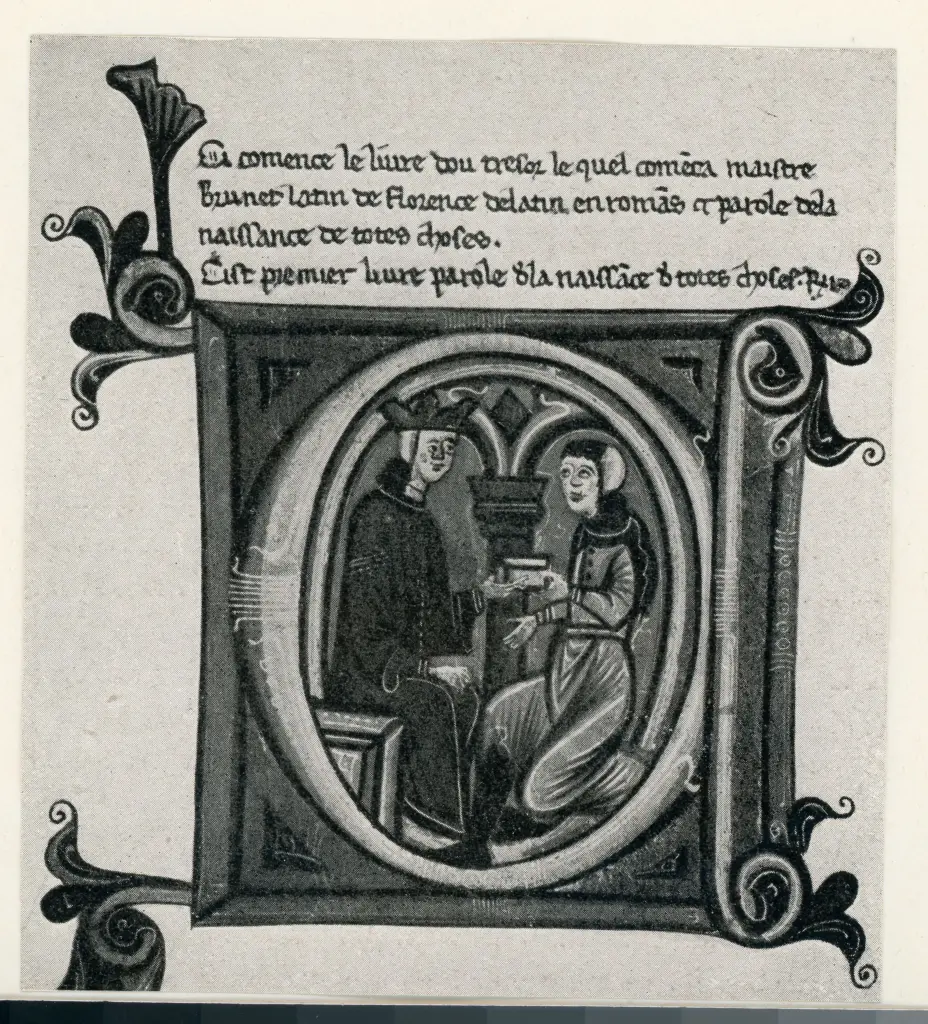 Ci comence le liure dou tresor le quel comēca maistre
Brunet latin de florence delatin enromās & parole dela
naissance de totes choses.
Cist premier liure parole d'la naissāce d' totes choses. Ru